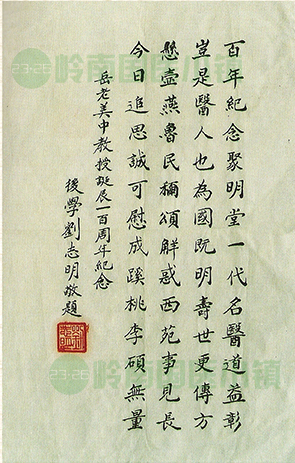 百年紀念聚明堂一代名醫道益彰
豈是醫人也為國既明壽世更傳方
懸壺燕魯民稱頌觧惑西苑事見長
今日追思誠可慰成蹊桃李碩無量
岳老美中教授誕辰一百周年紀念
後學劉志明敬題
岭南国医小镇